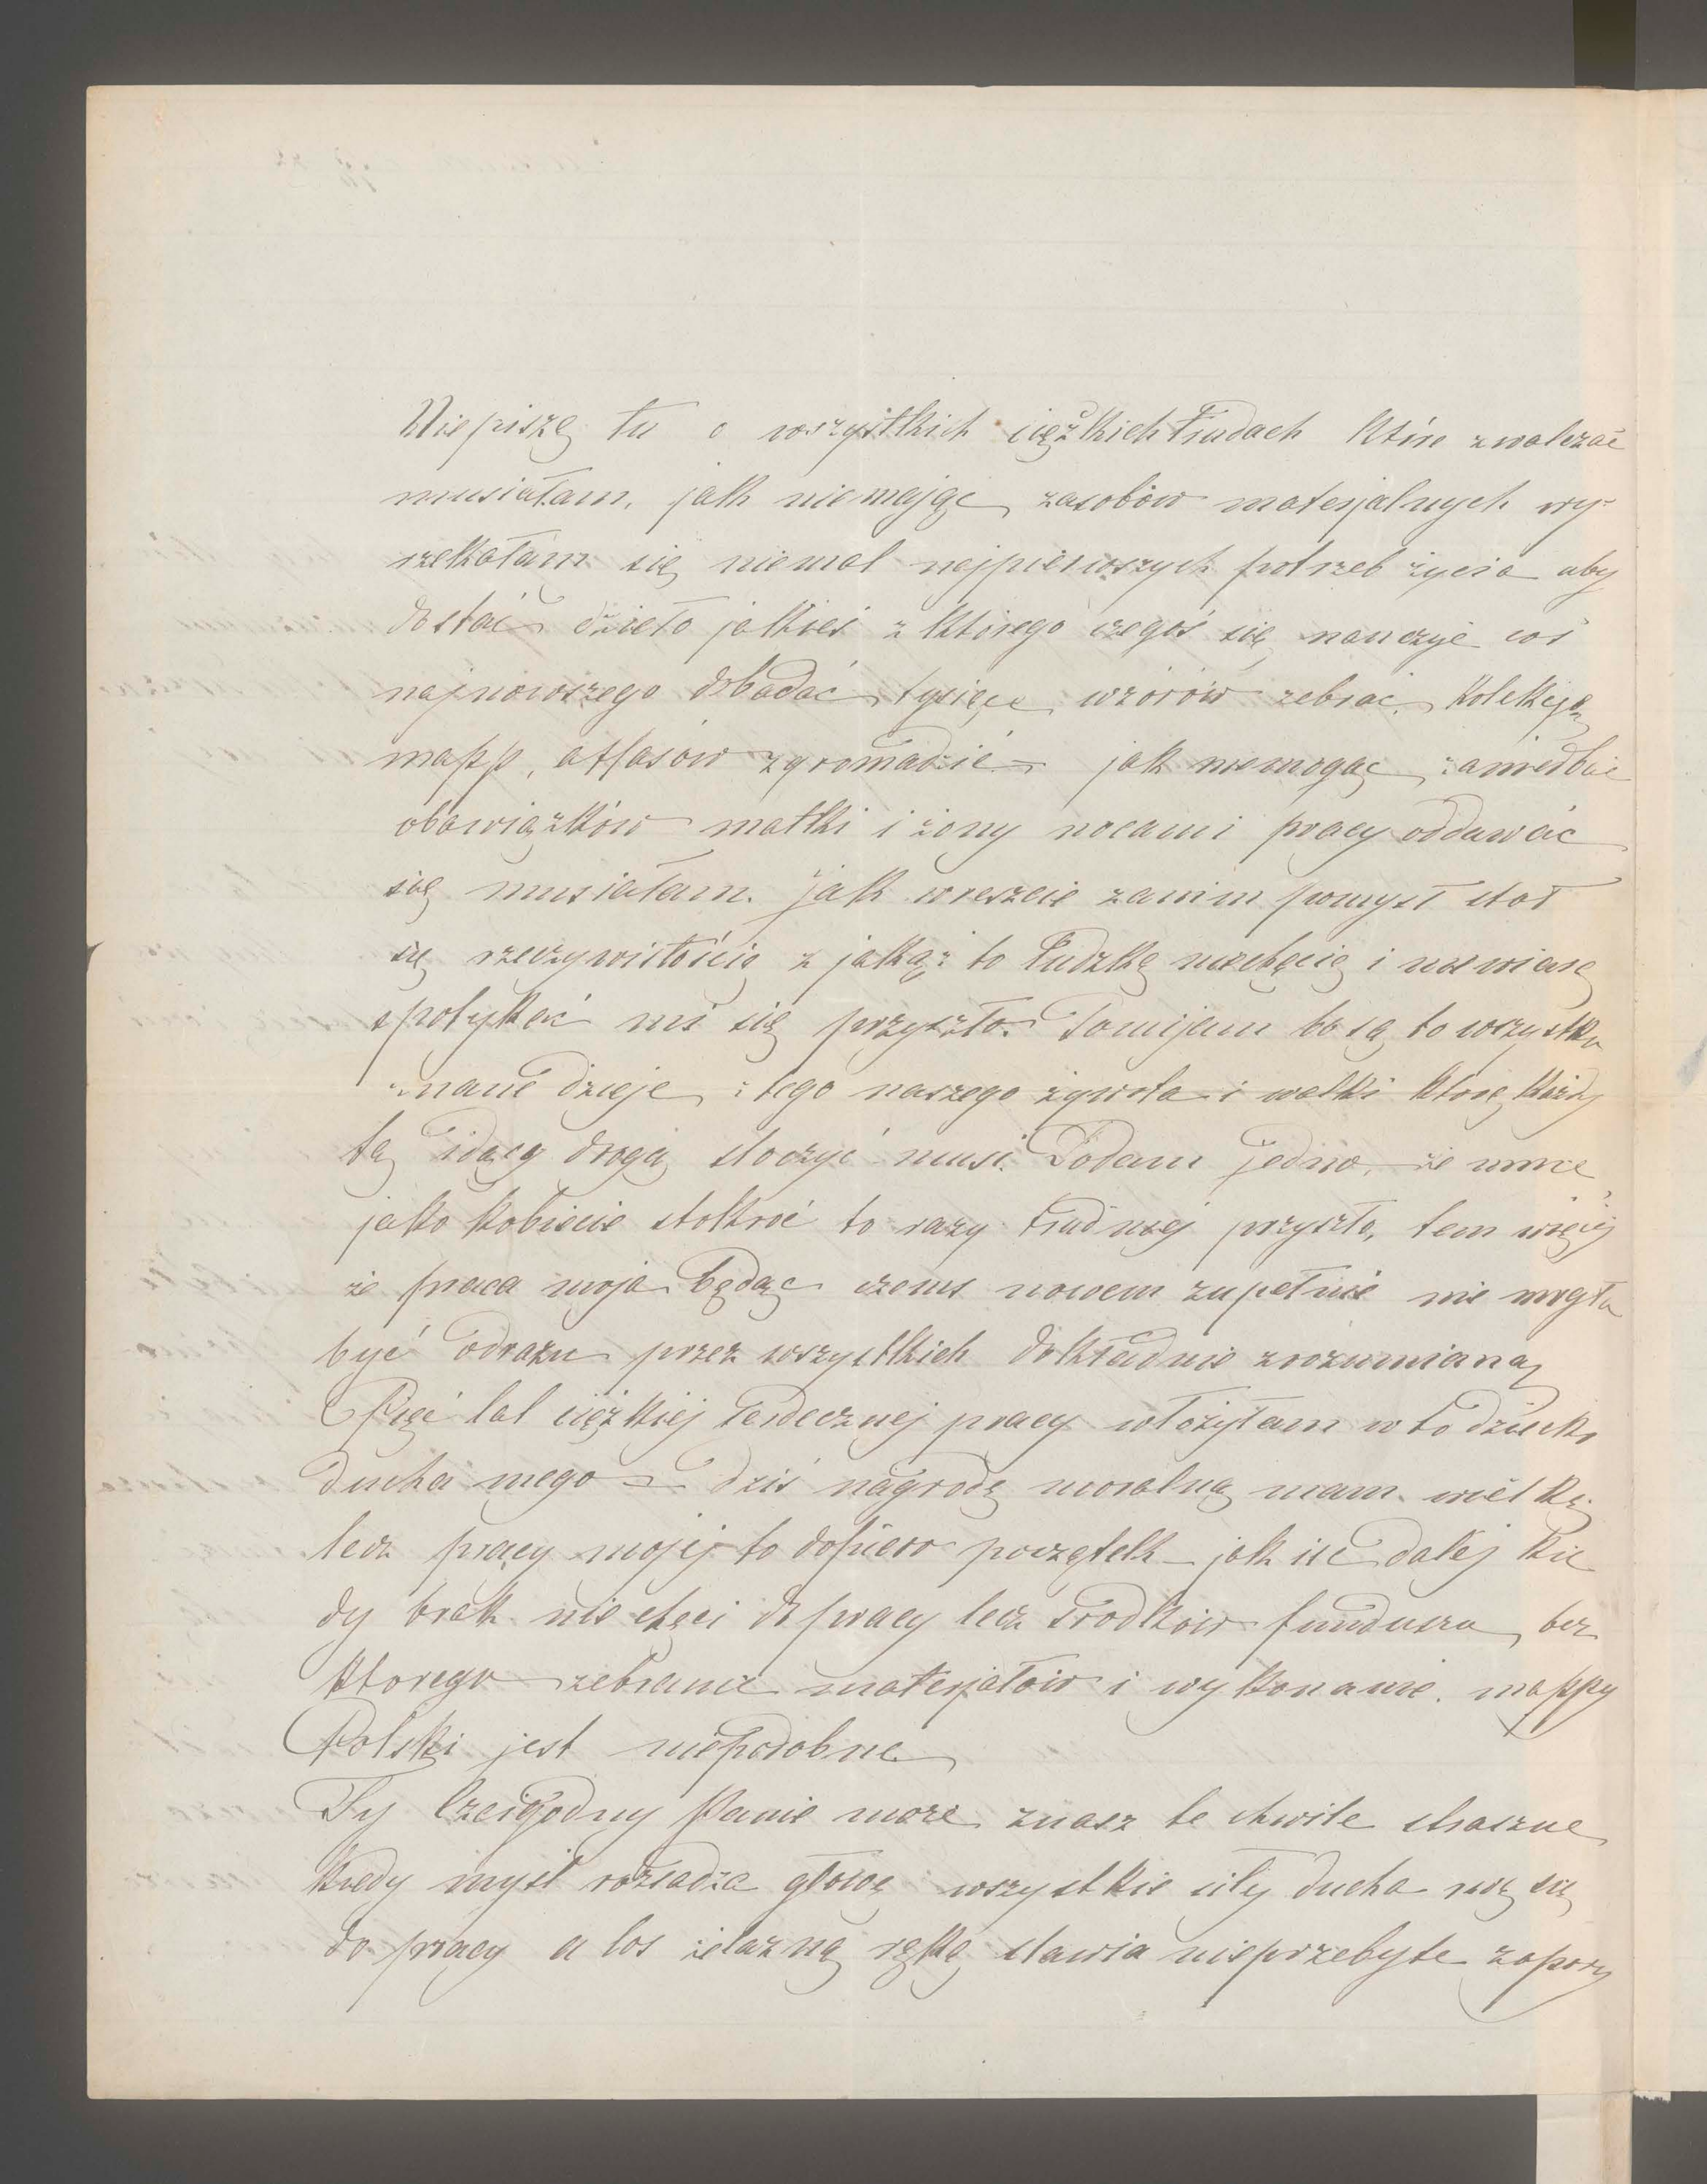 Niepiszę tu o wszystkich ciężkich trudach które zwalczać
musiałam, jak niemając zasobów materjalnych wy-
rzekałam się niemal najpierwszych potrzeb życia aby
dostać dzieło jakieś z którego czegoś się nauczyć coś
najnowszego zbadać tysiące wzorów zebrać, kolekcję
mapp, atlasów zgromadzić – jak niemogąc zaniedbać
obowiązków matki i żony nocami pracy oddawać
się musiałam. jak wreszcie zanim pomysł stał
się rzeczywistością z jakąż to ludzką niechęcią i niewiarą
spotykać mi się przyszło. Pomijam bo są to wszystko
znane dzieje z tego naszego żywota i walki którę każdy
tą idący drogą stoczyć musi. Dodam jedno, że mnie
jako kobiecie stokroć to razy trudniej przyszło, tem więcej
że praca moja będąc czemś nowem zupełnie nie mogła
być odrazu przez wszystkich dokładnie zrozumianą
Pięć lat ciężkiej serdecznej pracy włożyłam w to dziecko
ducha mego – dziś nagrodę moralną mam wielką
lecz pracy mojej to dopiero początek – jak iść dalej kie
dy brak nie chęci do pracy lecz środków funduszu, bez
ktorego zebranie materjałów i wykonanie mappy
Polski jest niepodobne
Ty Czcigodny Panie może znasz te chwile straszne
kiedy myśl rozsadza głowę wszystkie siły ducha rwą się
do pracy a los żelazną ręką stawia nieprzebyte zapory